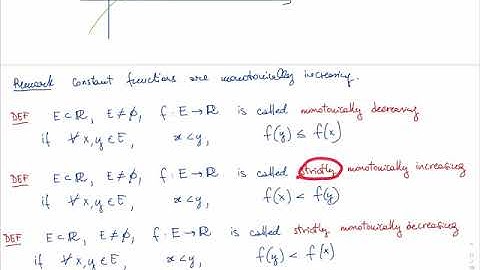 Remark Constant functions are monotonically increasing.
DEF E⊂ℝ, E≠∅, f:E→ℝ is called monotonically decreasing
if ∀x,y∈E, x<y, f(y)≤f(x)
DEF E⊂ℝ, E≠∅, f:E→ℝ is called strictly monotonically increasing
if ∀x,y∈E, x<y, f(x)<f(y)
DEF E⊂ℝ, E≠∅, f:E→ℝ is called strictly monotonically decreasing
if ∀x,y∈E, x<y, f(y)<f(x)